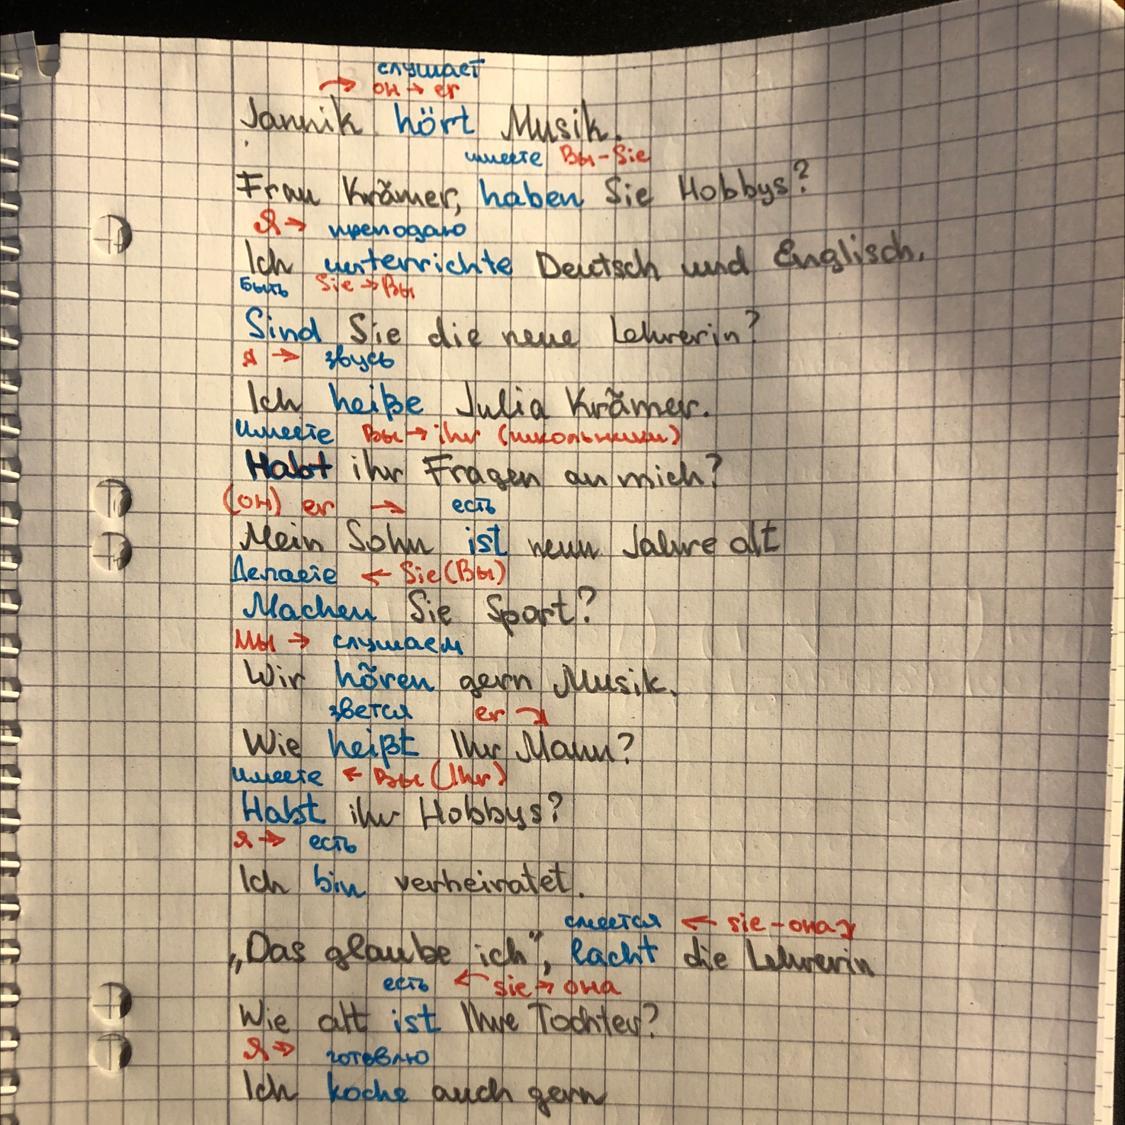 слушает
→ он → er
Jannik hört Musik.
имеете Вы-Sie
Frau Krämer, haben Sie Hobbys?
Я → преподаю
Ich unterrichte Deutsch und Englisch.
быть Sie → Вы
Sind Sie die neue Lehrerin?
я → звусь
Ich heiße Julia Krämer.
Имеете Вы → ihr (школьники)
Habt ihr Fragen an mich?
(он) er → есть
Mein Sohn ist neun Jahre alt
Делаете ← Sie (Вы)
Machen Sie Sport?
Мы → слушаем
Wir hören gern Musik.
зветcя er →
Wie heißt Ihr Mann?
имеете ← Вы (Ihr)
Habt ihr Hobbys?
я → есть
Ich bin verheiratet.
смеется ← sie - она
„Das glaube ich“, lacht die Lehrerin
есть ← sie → она
Wie alt ist Ihre Tochter?
Я → готовлю
Ich koche auch gern